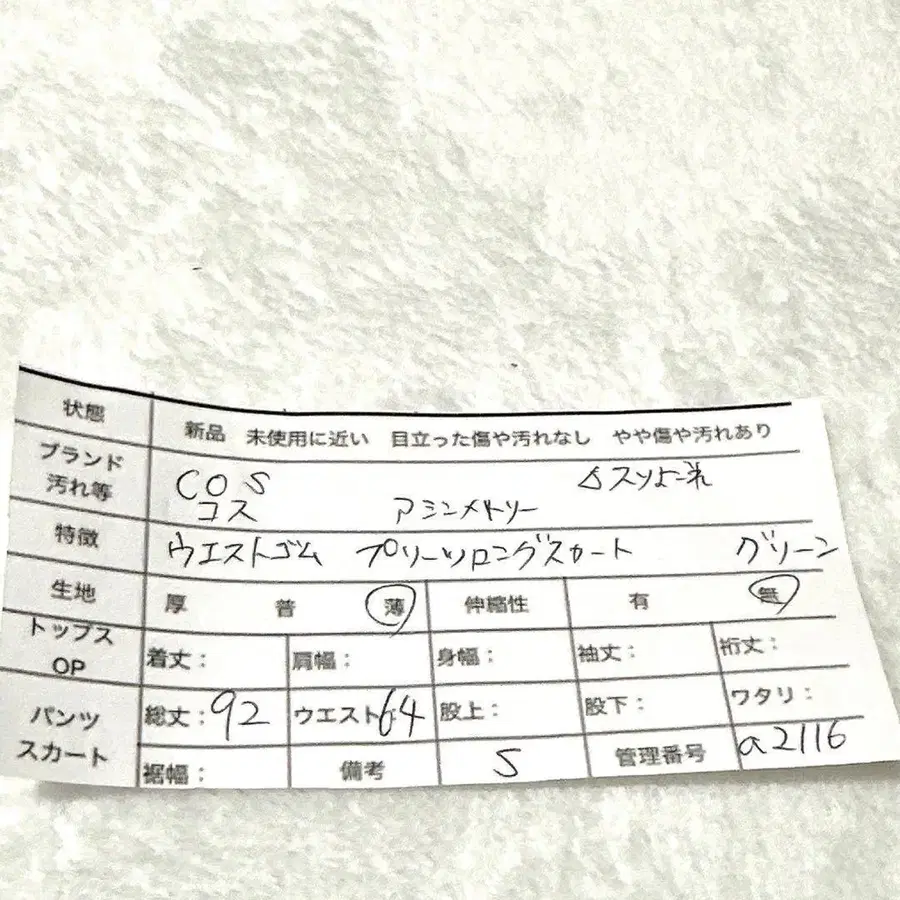 状態 新品 未使用に近い 目立った傷や汚れなし やや傷や汚れあり
ブランド
汚れ等
COS
コス アシンメトリー
特徴 ウエストゴム プリーツロングスカート グリーン
生地 厚 普 薄 伸縮性 有 無
トップス
OP
着丈: 肩幅: 身幅: 袖丈: 裄丈:
パンツ
スカート
総丈:92 ウエスト:64 股上: 股下: ワタリ:
裾幅: 備考 S 管理番号 a2116